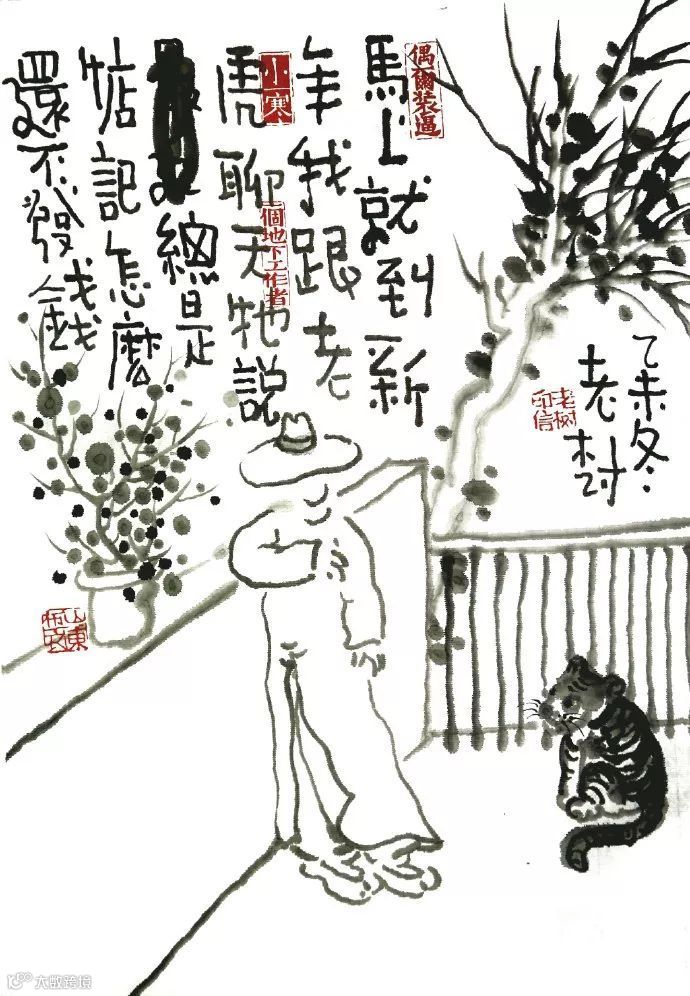 馬上就到新
年我跟老
虎聊天牠說
總是
惦記怎麼
還不發錢
偶爾装逼
小寒
一個地下工作者
乙未冬
老树
老树
印信
山東
大数跨境